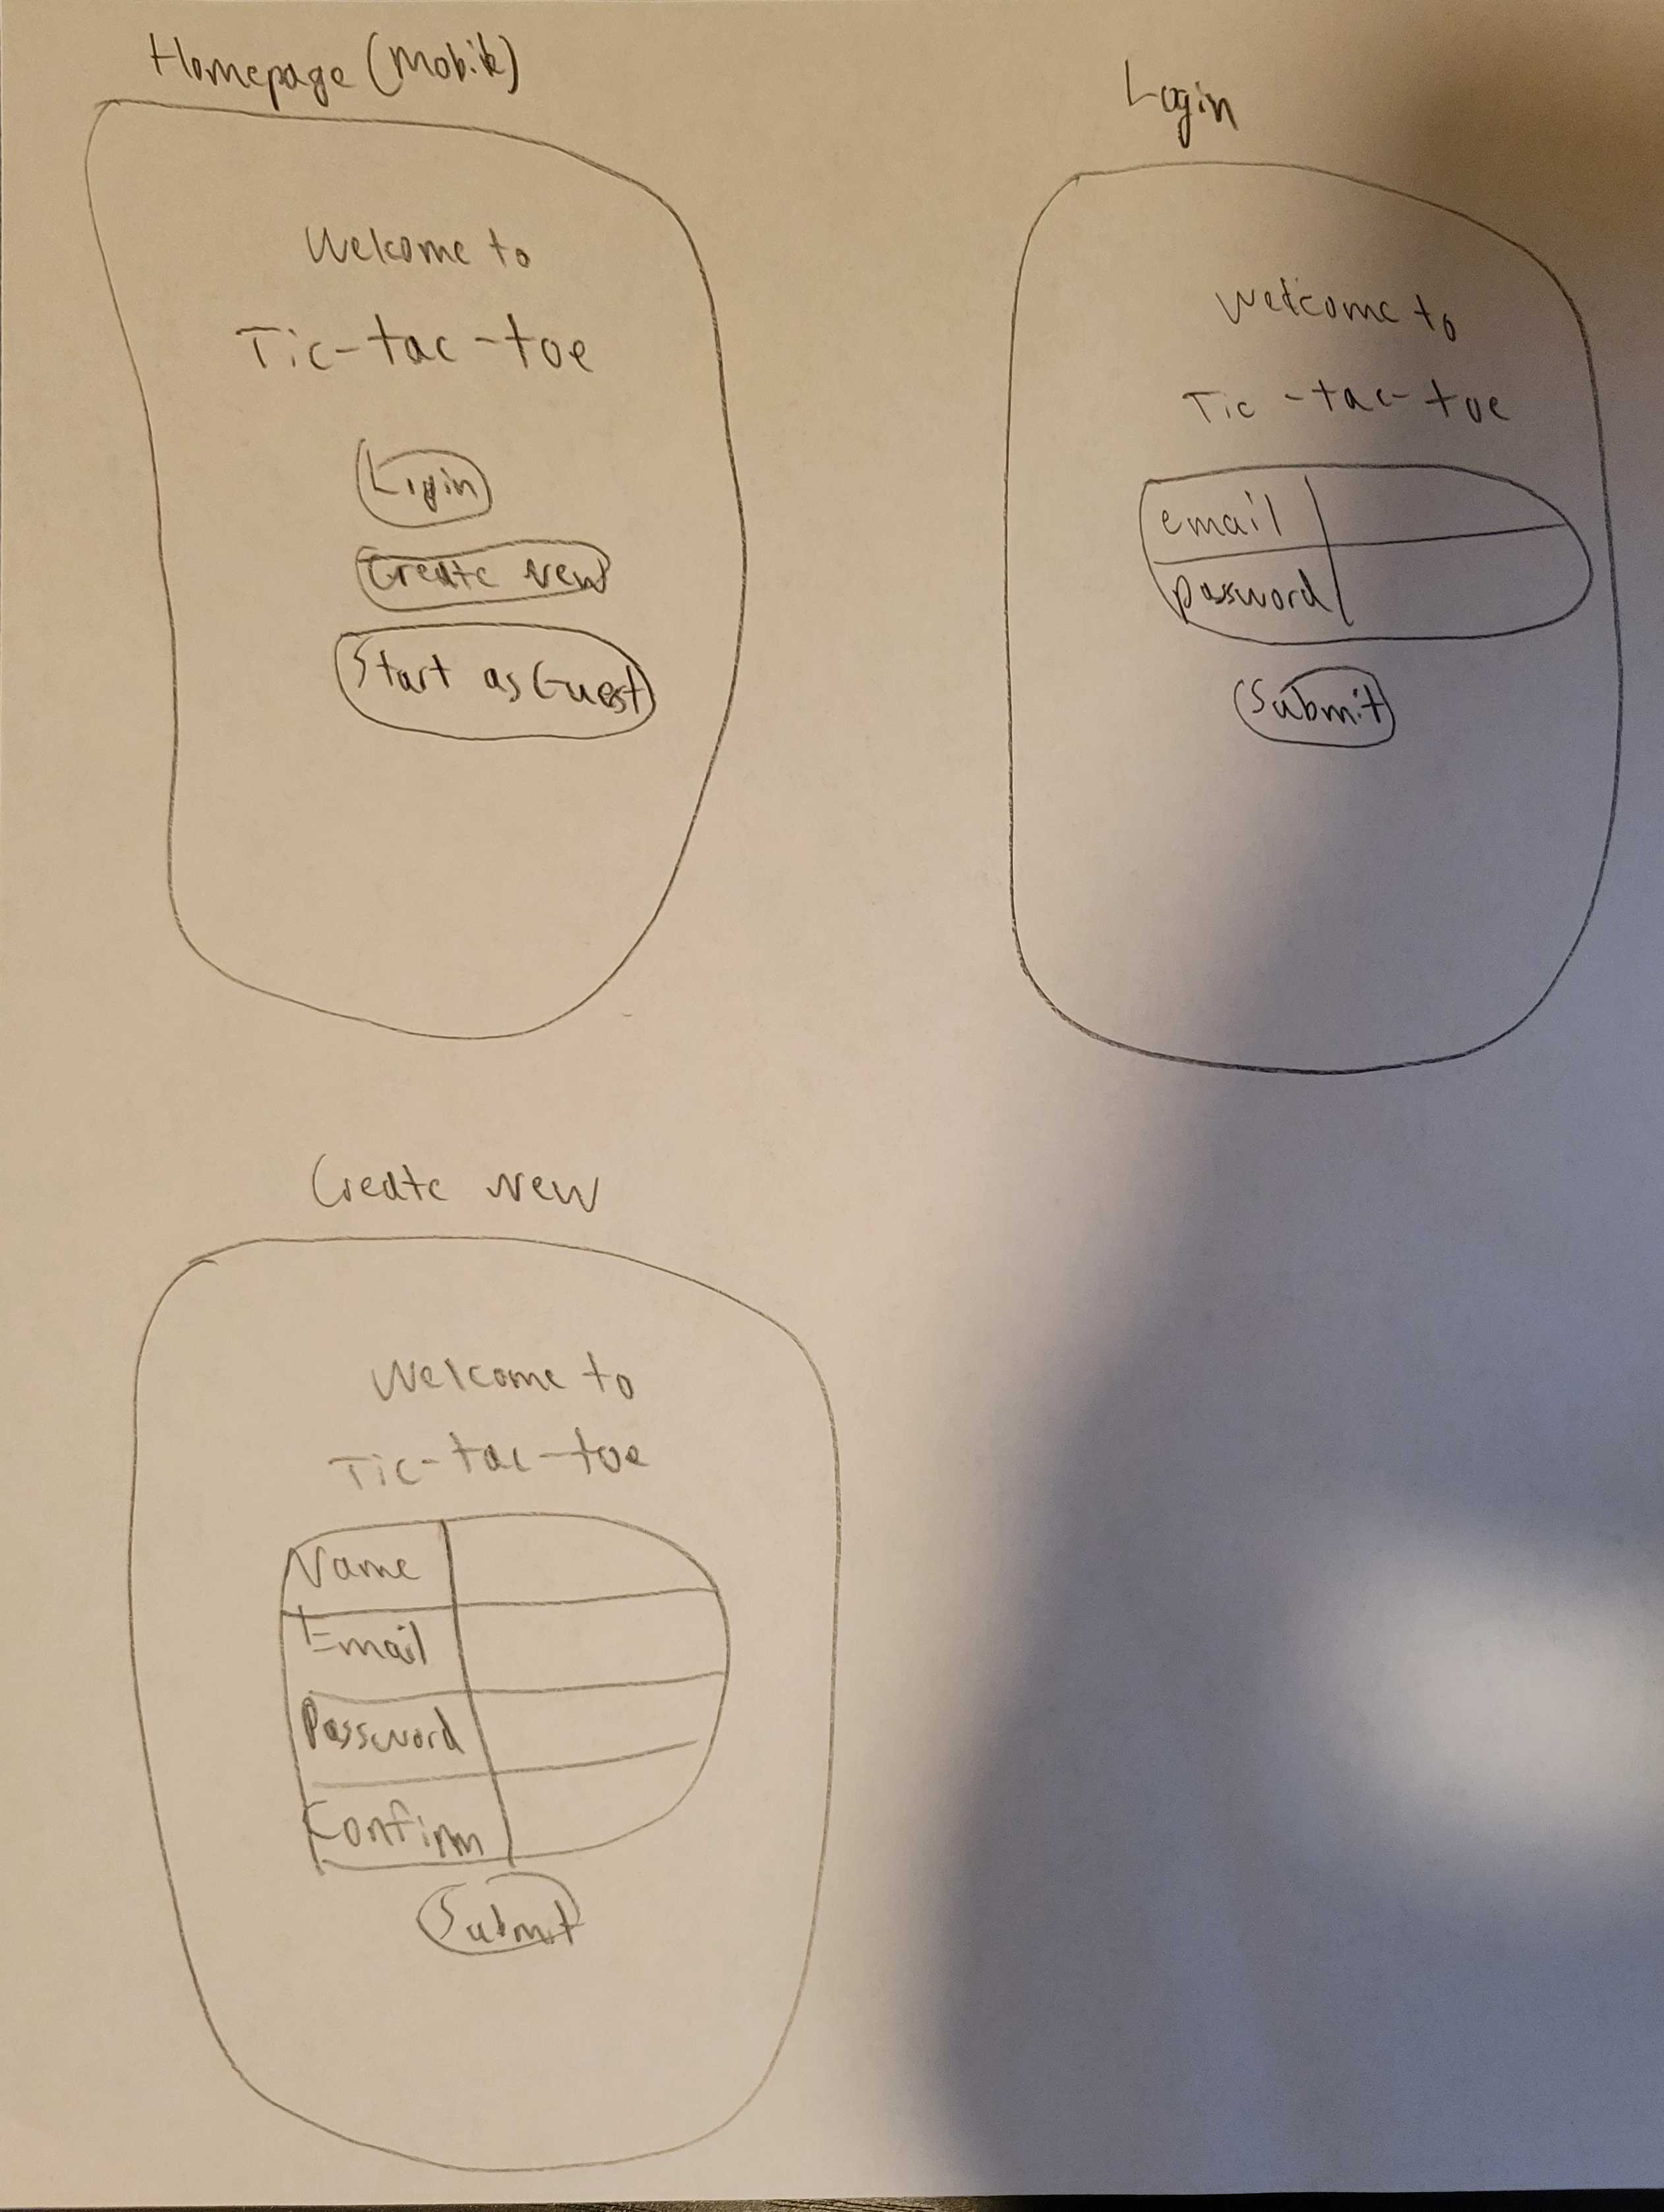 Homepage (Mobile)
Welcome to
Tic-tac-toe
Login
Create New
Start as Guest
Login
Welcome to
Tic-tac-toe
email
password
Submit
Create New
Welcome to
Tic-tac-toe
Name
Email
Password
Confirm
Submit